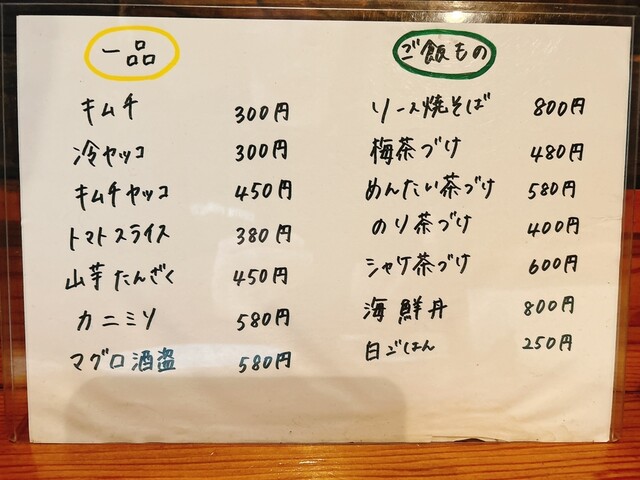 一品
キムチ 300円
冷ヤッコ 300円
キムチヤッコ 450円
トマトスライス 380円
山芋たんざく 450円
カニミソ 580円
マグロ酒盗 580円
ご飯もの
ソース焼そば 800円
梅茶づけ 480円
めんたい茶づけ 580円
のり茶づけ 400円
シャケ茶づけ 600円
海鮮丼 800円
白ごはん 250円